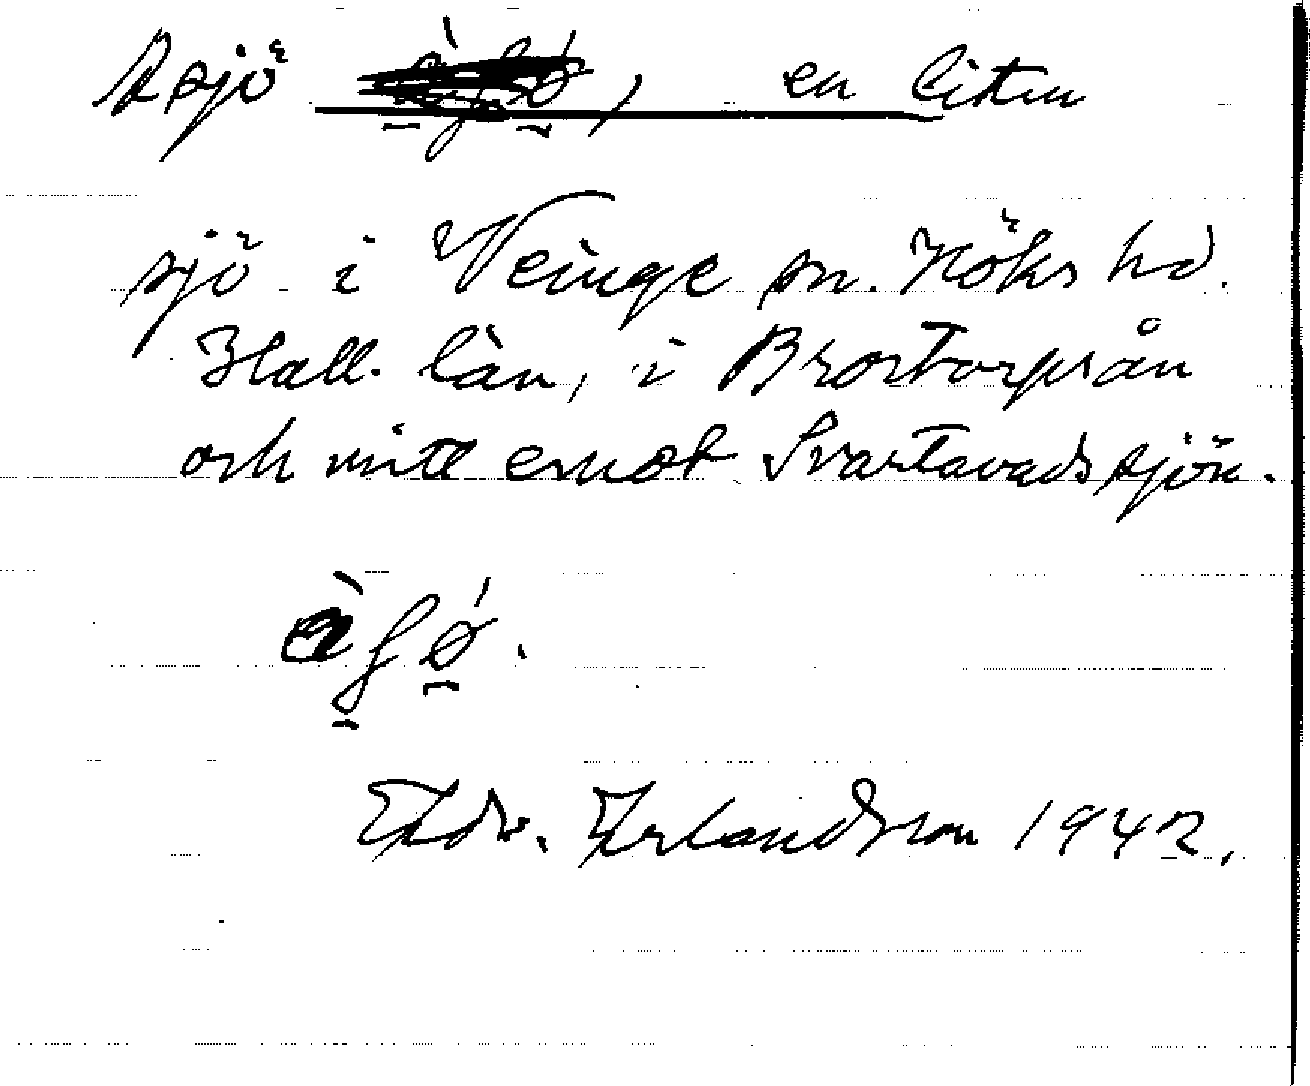 Asjö, en liten
sjö i Veinge sn. Höks hd.
Hall. län, i Brostorpsån
och mitt emot Svartavadssjön.
àʃǿ̠.
Edv. Erlandsson 1942.